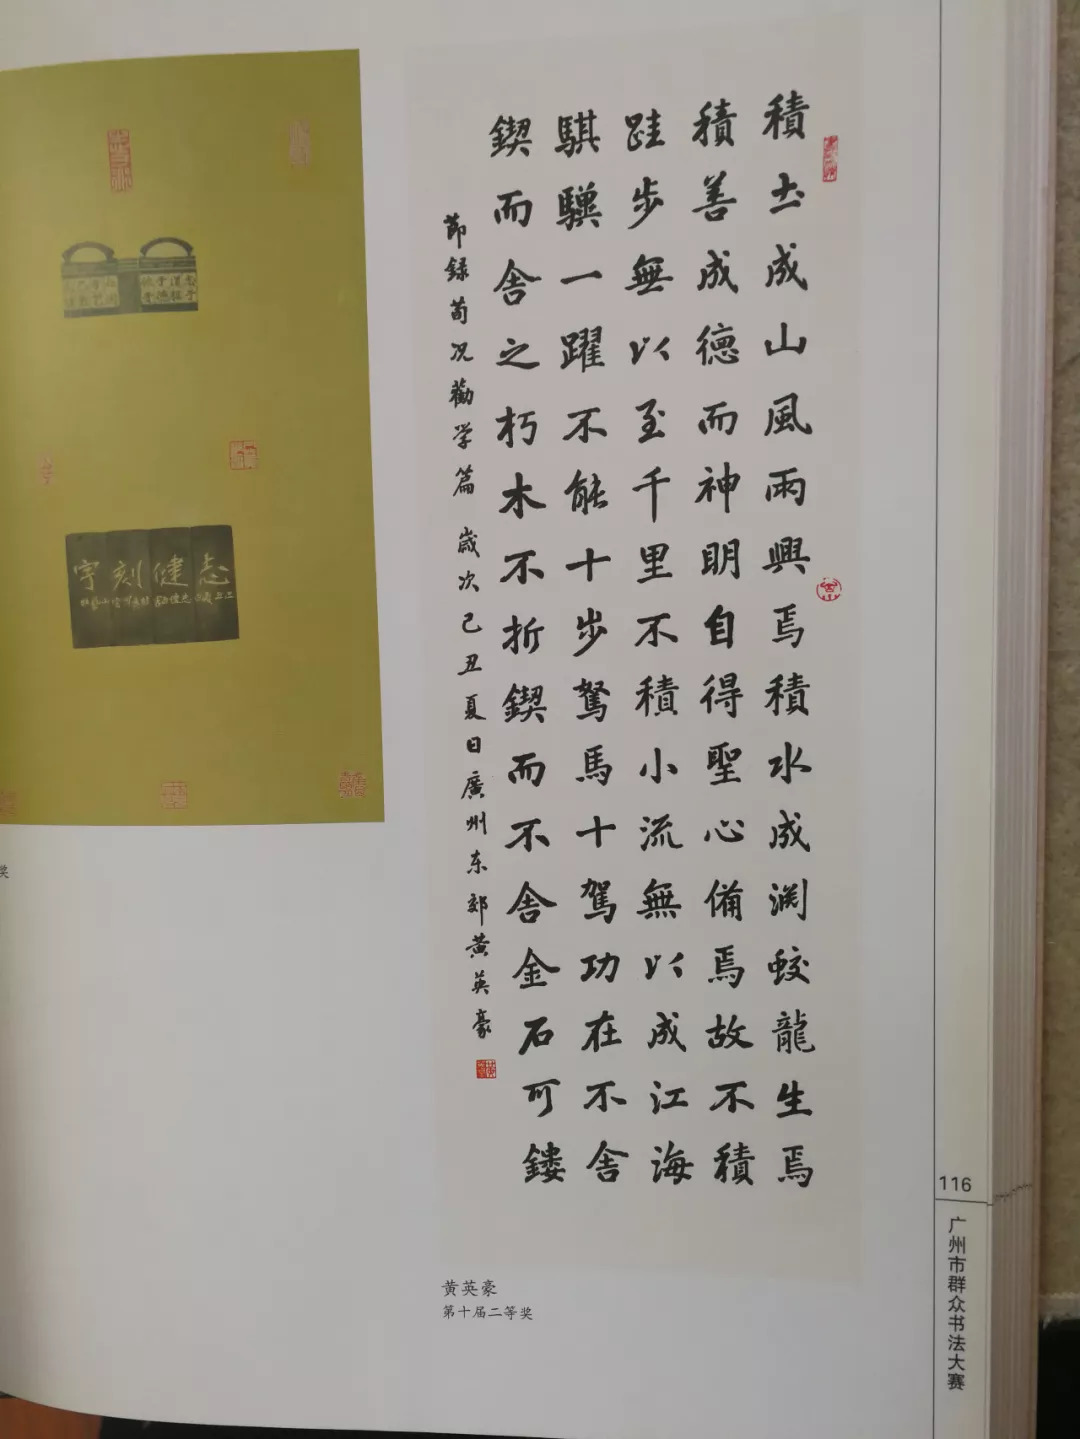 積土成山風雨興焉積水成渊蛟龍生焉
積善成德而神明自得聖心備焉故不積
跬步無以至千里不積小流無以成江海
騏驥一躍不能十步駑馬十駕功在不舍
鍥而舍之朽木不折鍥而不舍金石可鏤
節録荀况勸学篇 歲次己丑夏日廣州东郊黄英豪
志健刻字
奖
黄英豪
第十届二等奖
116
广州市群众书法大赛